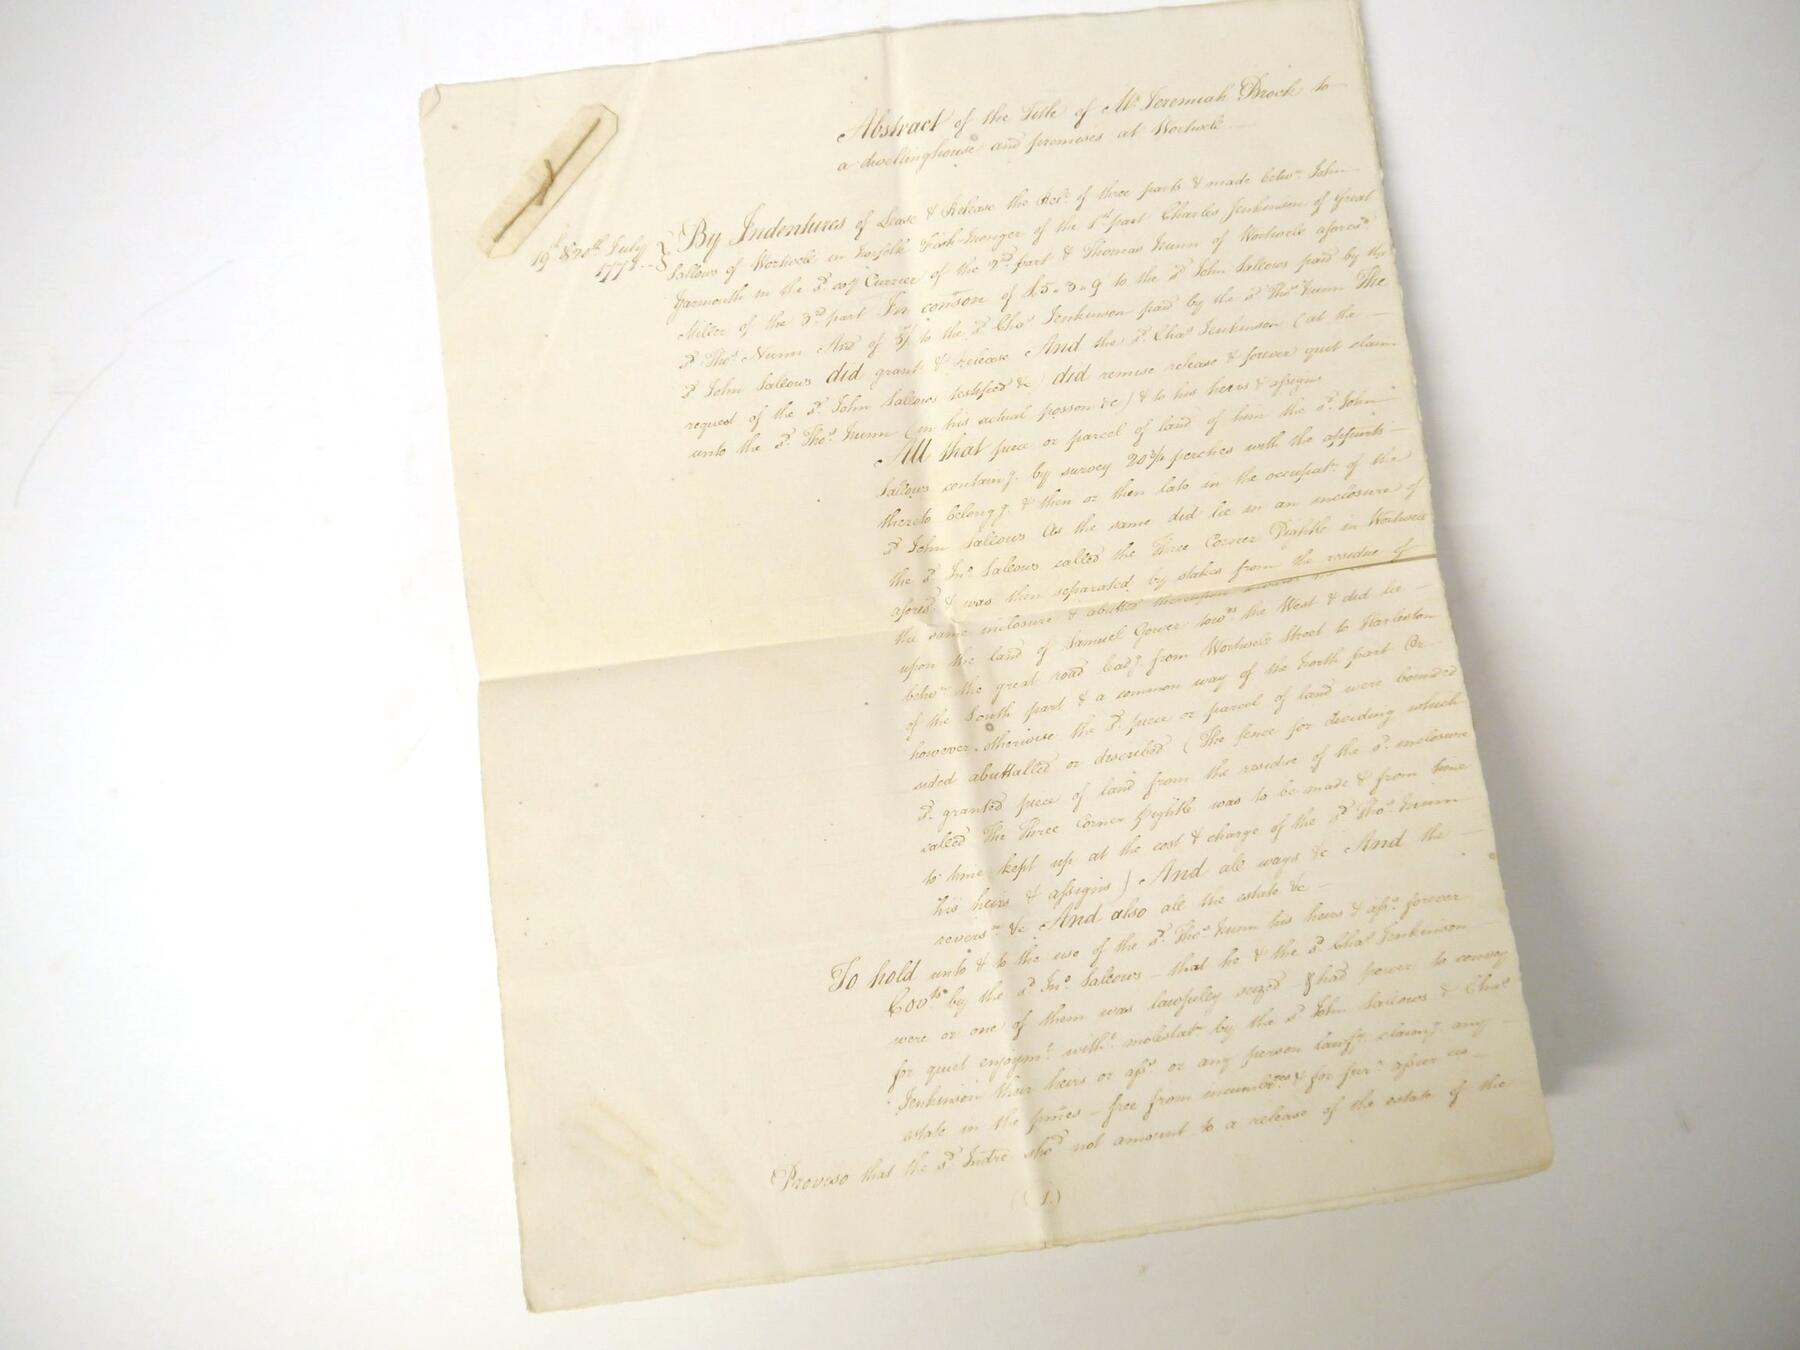 Abstract of the Title of Mr. Jeremiah Brock to
a dwellinghouse and premises at Wortwell
19th & 20th July
By Indentures of Lease & Release the Rele. of three parts & made betwn. John
Sallows of Wortwell in Norfolk Fish-monger of the 1st part Charles Jenkinson of Great
Yarmouth in the sd. coy. Currier of the 2nd. part & Thomas Nunn of Wortwell aforesd.
Miller of the 3rd. part In conson of £5.3.9 to the sd. John Sallows paid by the
sd. Thos. Nunn And of 5/ to the sd. Chas. Jenkinson paid by the sd. Thos. Nunn The
sd. John Sallows did grant & release And the sd. Chas. Jenkinson (at the
request of the sd. John Sallows testified &c) did remise release & forever quit claim
unto the sd. Thos. Nunn (in his actual posson &c) & to his heirs & assigns
All that piece or parcel of land of him the sd. John
Sallows containg. by survey 20 3/4 perches with the appurts
thereto belongg. & then or then late in the occupatn. of the
sd. John Sallows As the same did lie in an inclosure of
the sd. Jno. Sallows called the Three Corner Pightle in Wortwell
aforesd. & was then separated by stakes from the residue of
the same inclosure & abutted thereupon
upon the land of Samuel Gower towds the West & did lie
betwn. the great road leadg. from Wortwell Street to Harleston
of the South part & a common way of the North part Or
however otherwise the sd. piece or parcel of land were bounded
sided abuttalled or described (The fence for dividing which
sd. granted piece of land from the residue of the sd. inclosure
called The Three Corner Pightle was to be made & from time
to time kept up at the cost & charge of the sd. Thos. Nunn
his heirs & assigns) And all ways &c And the
reversn. &c And also all the estate &c
To hold unto & to the use of the sd. Thos. Nunn his heirs & asss. forever
Covts. by the sd. Jno. Sallows - that he & the sd. Chas. Jenkinson
were or one of them was lawfully seized - & had power to convey
for quiet enjoymt. witht. molestatn. by the sd. John Sallows & Chas.
Jenkinson their heirs or asss. or any person lawfy. claimg. any
estate in the pmes - free from incumbces & for furr. assurces
Proviso that the sd. Indre shod. not amount to a release of the estate of the
(1.)